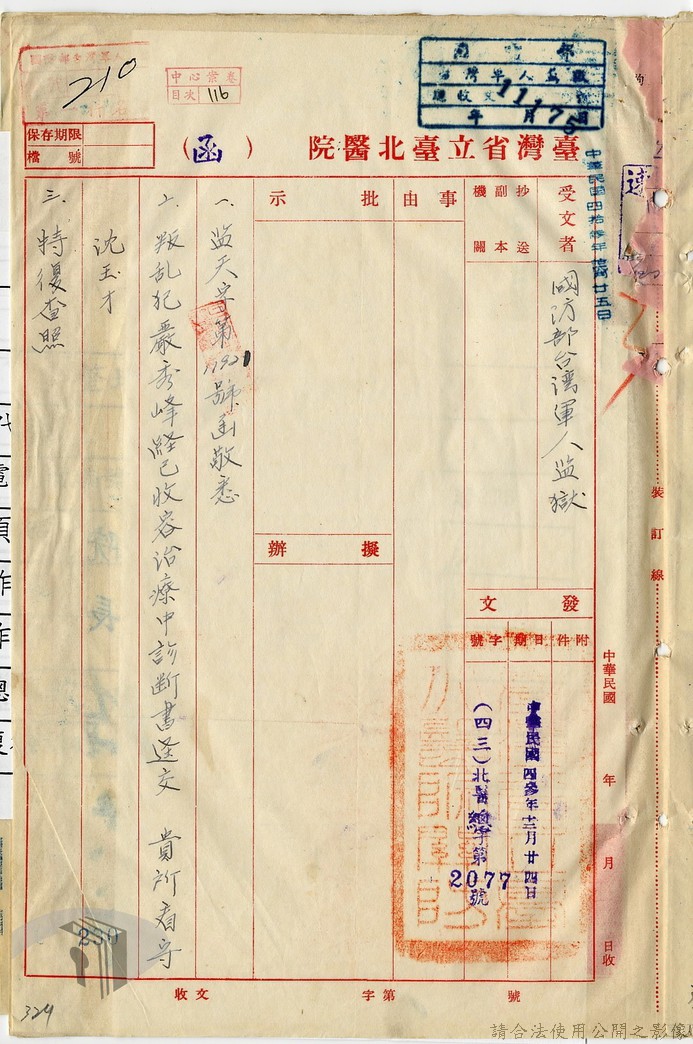 臺灣省立臺北醫院
（函）
中心案卷
目次 116
210
保存期限
檔號
速
中華民國四拾參年 廿五日
受文者
國防部台灣軍人监獄
抄送
副本
機關
事由
批示
擬辦
發文
附件
日期
字號
中華民國四參年十二月廿四日
（四三）北醫總字第2077號
一、监天字第1921號函敬悉
二、叛乱犯嚴秀峰経已收容治療中診断書逕交 貴所看守
沈玉才
三、特復查照
裝訂線
中華民國 年 月 日收
收文 字第 號
230
324
請合法使用公開之影像